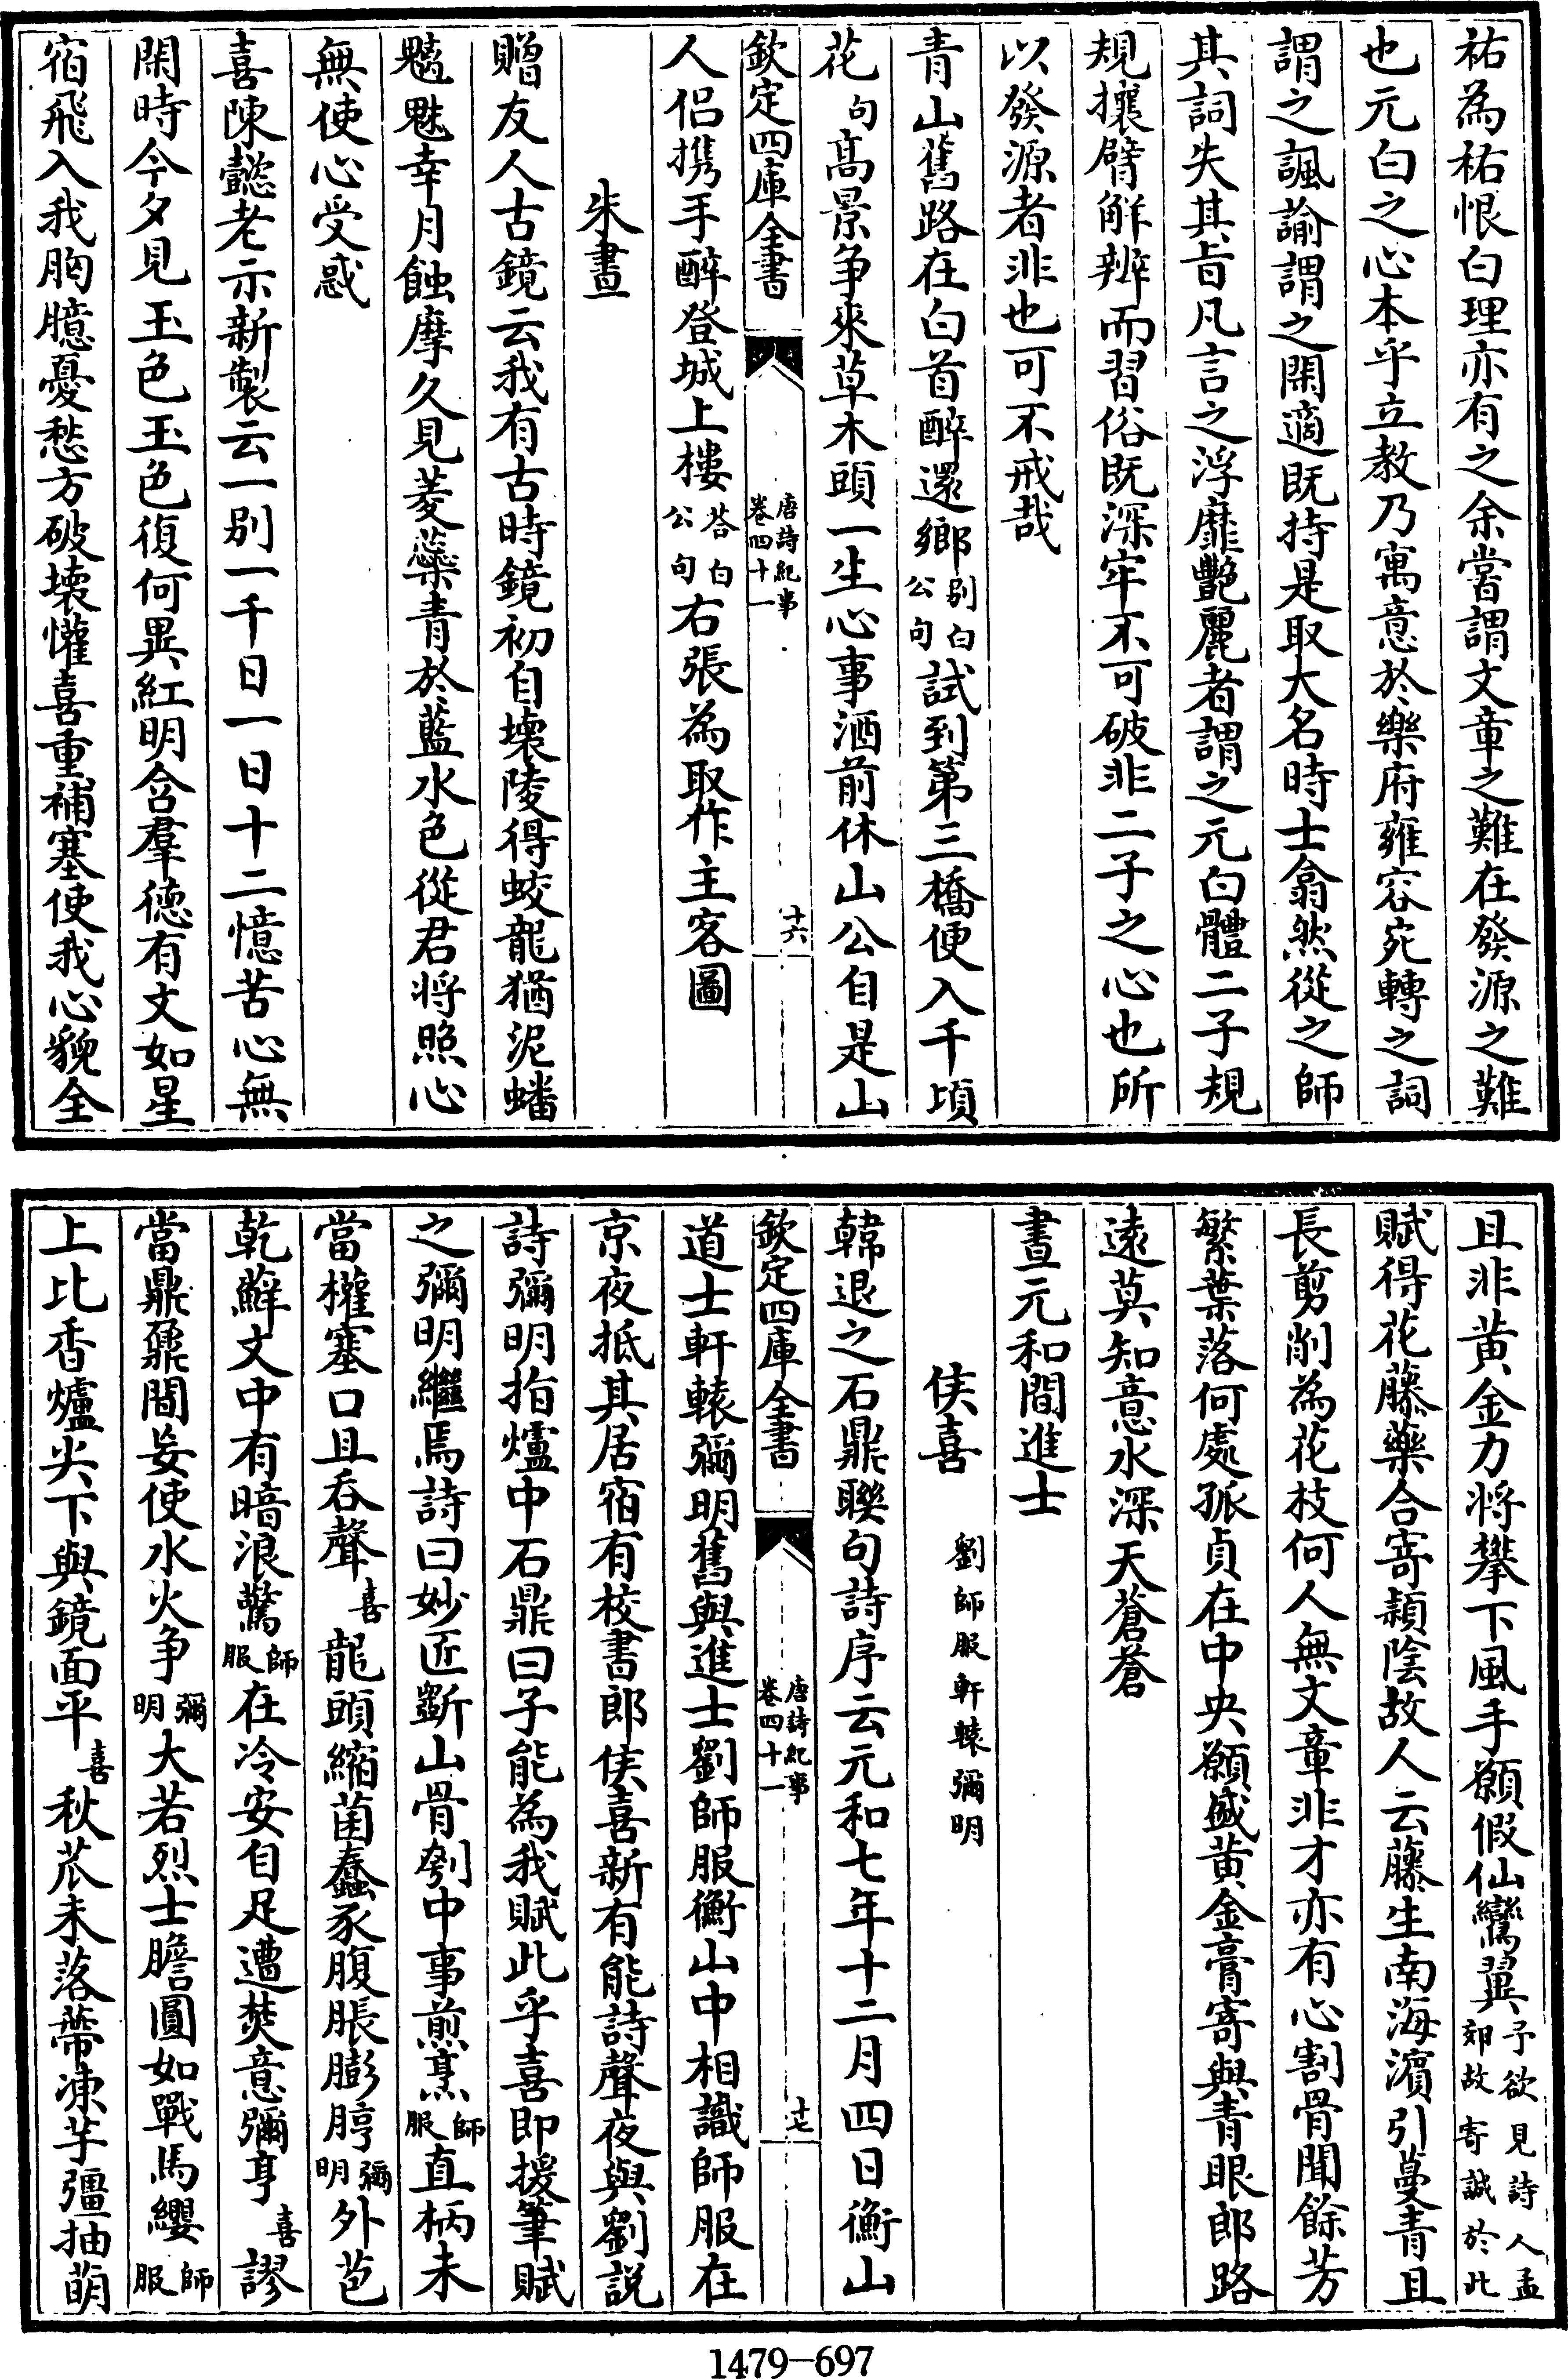 祐為祐恨白理亦有之余嘗謂文章之難在發源之難
也元白之心本乎立教乃寓意於樂府雍容宛轉之詞
謂之諷諭謂之閑適既持是取大名時士翕然從之師
其詞失其旨凡言之浮靡艷麗者謂之元白體二子規
規攘臂解辨而習俗既深牢不可破非二子之心也所
以發源者非也可不戒哉
青山舊路在白首醉還鄉别白公句試到第三橋便入千頃
花句高景争來草木頭一生心事酒前休山公自是山
欽定四庫全書
唐詩紀事
卷四十一
十六
人侣携手醉登城上樓荅白公句右張為取作主客圖
朱晝
贈友人古鏡云我有古時鏡初自壊陵得蛟龍猶泥蟠
魑魅幸月蝕摩久見菱蘂青於藍水色從君将照心
無使心受惑
喜陳懿老示新製云一别一千日一日十二憶苦心無
閑時今夕見玉色玉色復何異紅明含羣徳有文如星
宿飛入我胸臆憂愁方破壊懽喜重補塞使我心貌全
且非黄金力将攀下風手願假仙鸞翼予欲見詩人孟郊故寄誠於此
賦得花藤藥合寄潁陰故人云藤生南海濱引蔓青且
長剪削為花枝何人無文章非才亦有心割骨聞餘芳
繁葉落何處孤貞在中央願盛黄金膏寄與青眼郎路
遠莫知意水深天蒼蒼
晝元和間進士
侯喜 劉師服 軒轅彌明
韓退之石鼎聨句詩序云元和七年十二月四日衡山
欽定四庫全書
唐詩紀事
卷四十一
十七
道士軒轅彌明舊與進士劉師服衡山中相識師服在
京夜抵其居宿有校書郎侯喜新有能詩聲夜與劉説
詩彌明指爐中石鼎曰子能為我賦此乎喜即援筆賦
之彌明繼焉詩曰妙匠斵山骨刳中事煎烹師服直柄未
當權塞口且吞聲喜龍頭縮菌蠢豕腹脹膨脝彌明外苞
乾蘚文中有暗浪驚師服在冷安自足遭焚意彌亨喜謬
當鼎鼐間妄使水火争彌明大若烈士膽圓如戰馬纓師服
上比香爐尖下與鏡面平喜秋苽未落蔕凍芋彊抽萌
1479-697